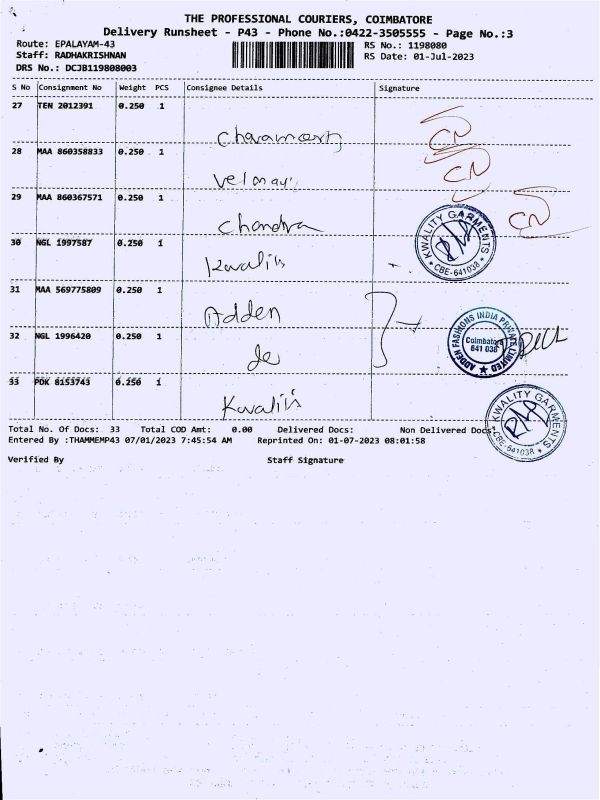 THE PROFESSIONAL COURIERS, COIMBATORE
Delivery Runsheet - P43 - Phone No.:0422-3505555 - Page No.:3
Route: EPALAYAM-43 RS No.: 1198080
Staff: RADHAKRISHNAN RS Date: 01-Jul-2023
DRS No.: DCJB119808003
S No Consignment No Weight PCS Consignee Details Signature
27 TEN 2012391 0.250 1
CN
28 MAA 860358833 0.250 1
CN
Velmayi
29 MAA 860367571 0.250 1
CN
Chandra
KWALITY GARMENTS
* CBE-641038 *
30 NGL 1997587 0.250 1
Kwalitis
31 MAA 569775809 0.250 1
Adden
ADDEN FASHIONS INDIA PRIVATE LIMITED
Coimbatore
641 038
32 NGL 1996420 0.250 1
do
33 POK 8153743 0.250 1
Kwalitis
KWALITY GARMENTS
* CBE-641038 *
Total No. Of Docs: 33 Total COD Amt: 0.00 Delivered Docs: Non Delivered Docs:
Entered By :THAMMEMP43 07/01/2023 7:45:54 AM Reprinted On: 01-07-2023 08:01:58
Verified By Staff Signature